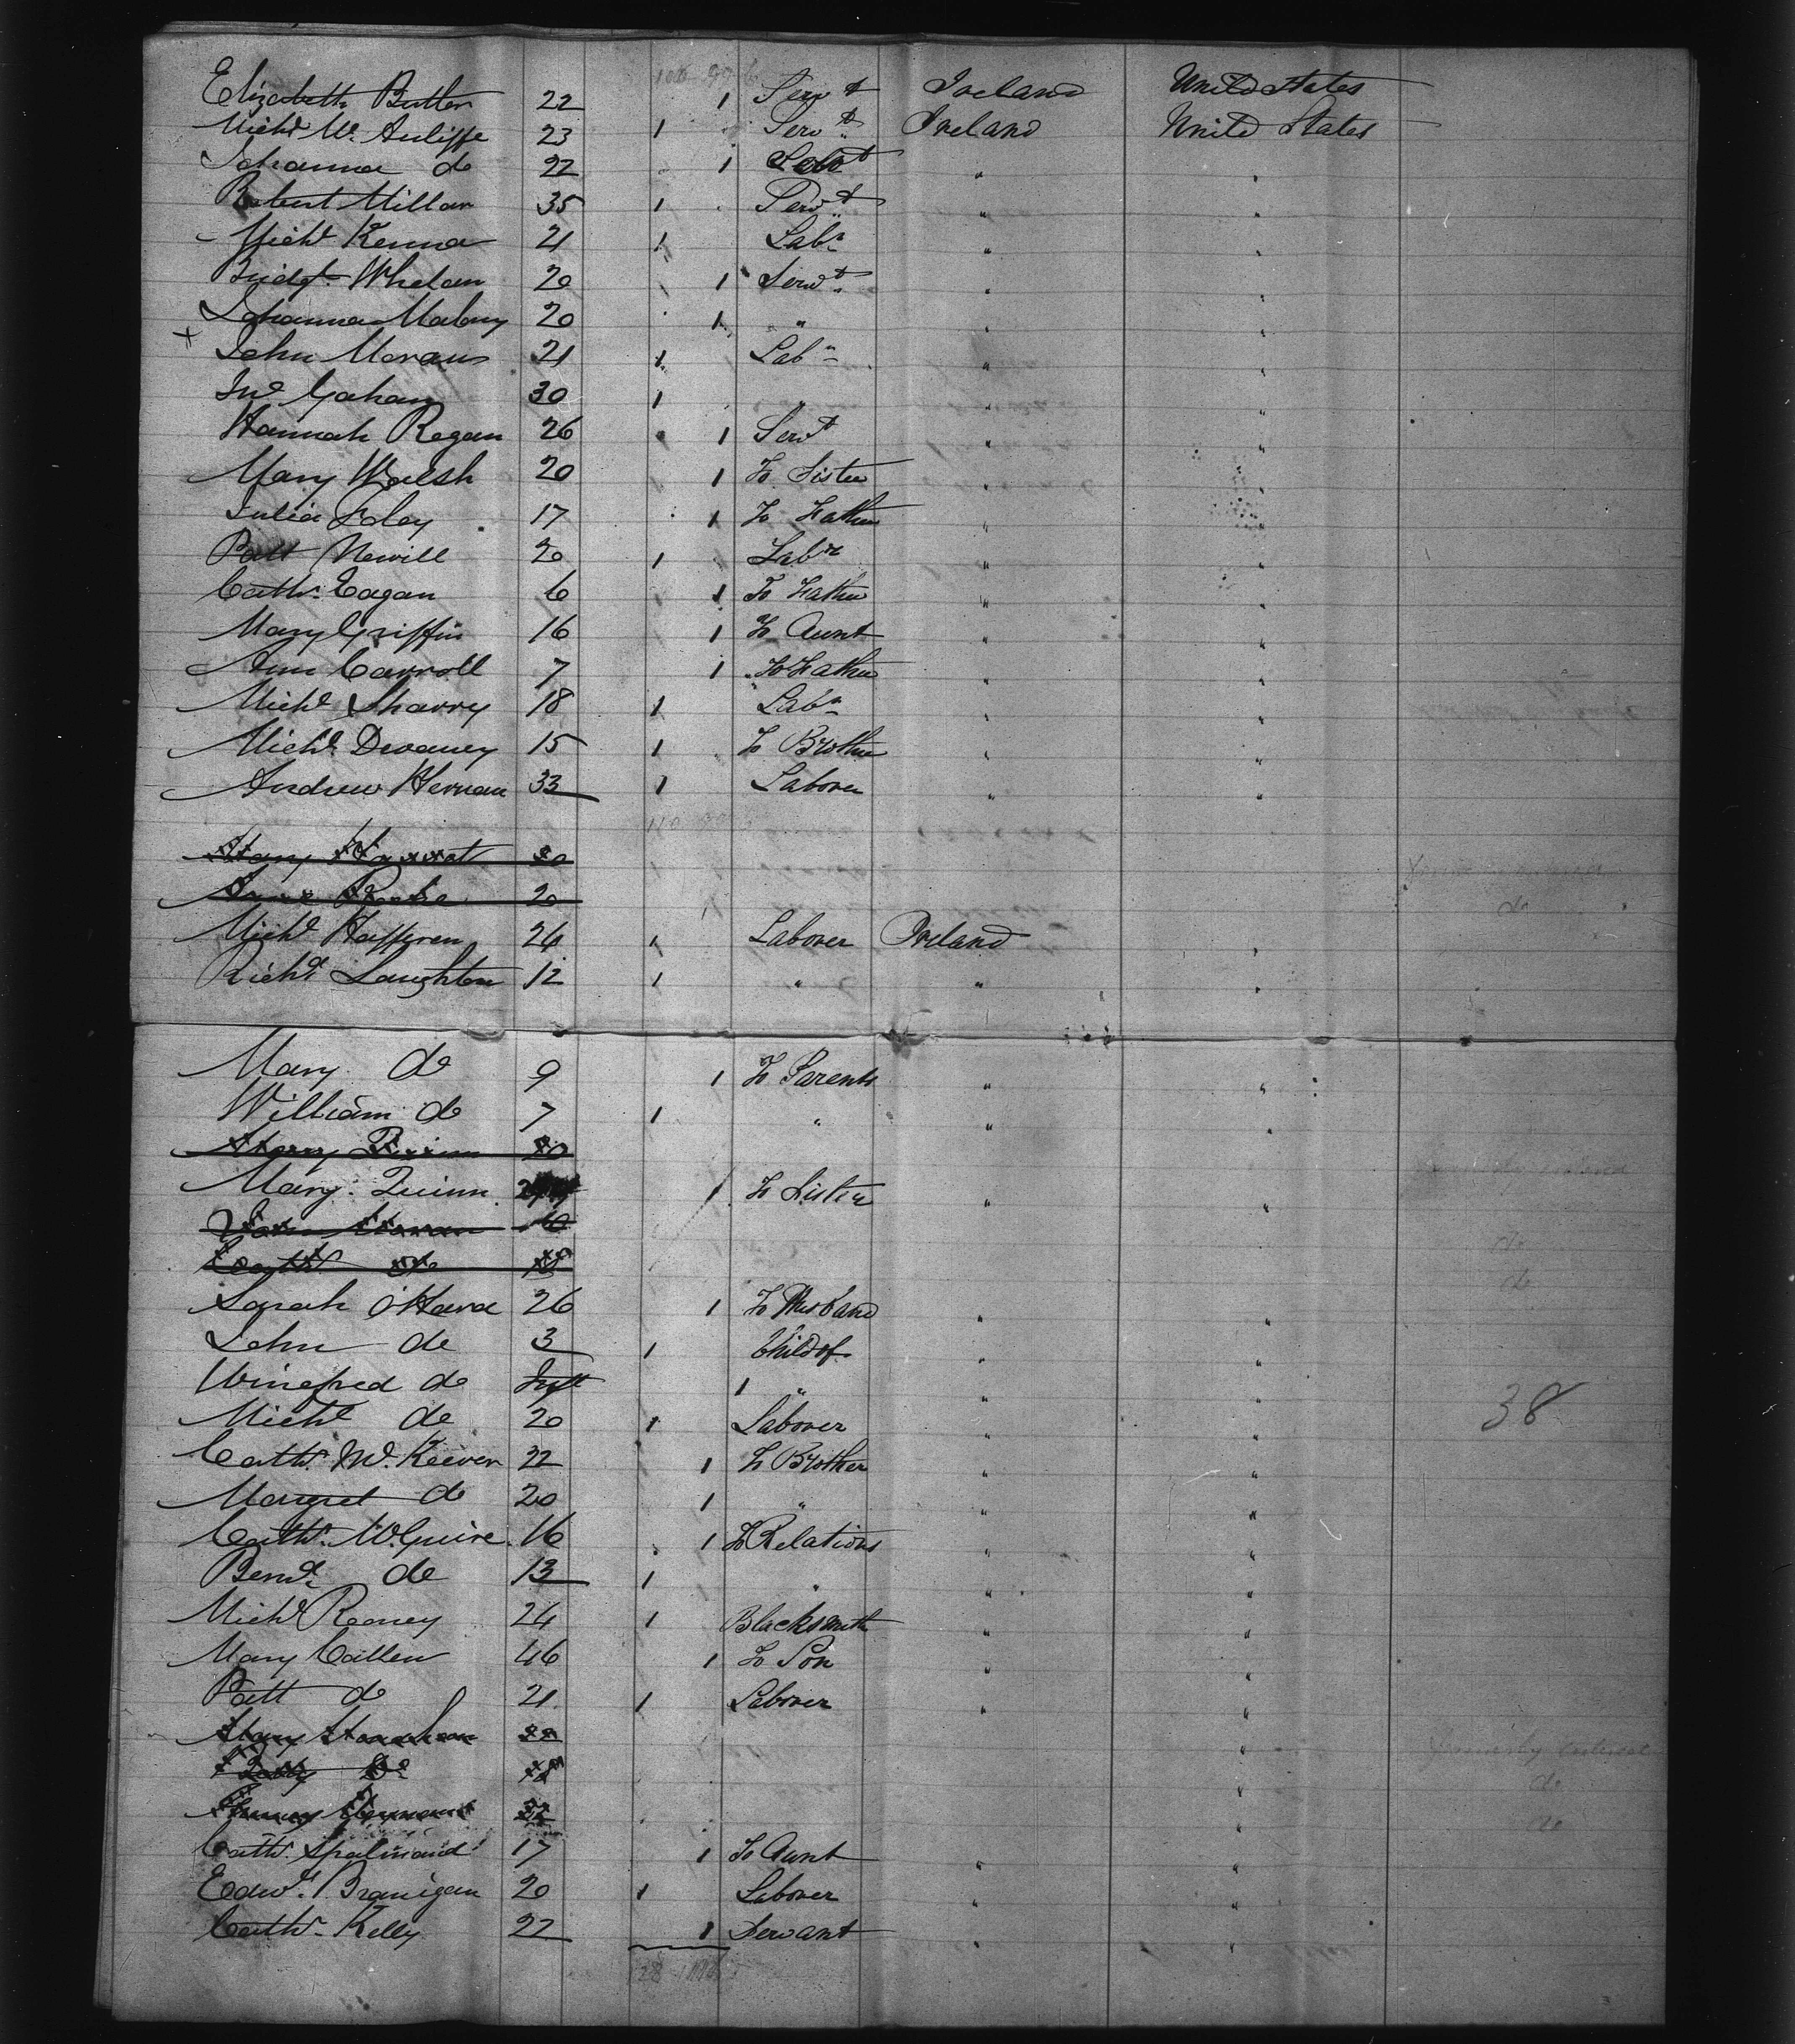 Elizabeth Butler 22 1 Servt Ireland United States
Michl Mc Auliffe 23 1 Servt Ireland United States
Johanna do 22 1 " "
Robert Millar 35 1 Servt " "
Michl Kenna 21 1 Labr " "
Bridgt Whelan 20 1 Servt " "
Johanna Malony 20 1 " " "
+ John Moran 21 1 Labr " "
Jno Gahan 30 1 " " "
Hannah Regan 26 1 Servt " "
Mary Walsh 20 1 To Sister " "
Julia Foley 17 1 To Father " "
Patt Nevill 20 1 Labr " "
Cathe Eagan 6 1 To Father " "
Mary Griffin 16 1 To Aunt " "
Ann Carroll 7 1 To Father " "
Michl Sharry 18 1 Labr " "
Michl Devaney 15 1 To Brother " "
Andrew Hernan 33 1 Laborer " "
20
20
Michl Hafferen 24 1 Laborer Ireland "
Richd Laughton 12 1 " " "
Mary do 9 1 To Parents " "
William do 7 1 " " "
Mary Quinn 20
Mary Quinn 1 To Sister " "
do
Cathe do do
Sarah O'Hara 26 1 To Husband " "
John do 3 1 Child of " "
Winefred do Inft 1 " " "
Michl do 20 1 Laborer " " 38
Cathe Mc Keever 22 1 To Brother " "
Margret do 20 1 " " "
Cathe McGuire 16 1 To Relations " "
Bernd do 13 1 " " "
Michl Rooney 24 1 Blacksmith " "
Mary Callen 46 1 To Son " "
Patt do 21 1 Laborer " "
Mary "
do " do
" do
Cathe 17 1 To Aunt " "
Edwd Branigan 20 1 Laborer " "
Cathe Kelly 22 1 Servant "